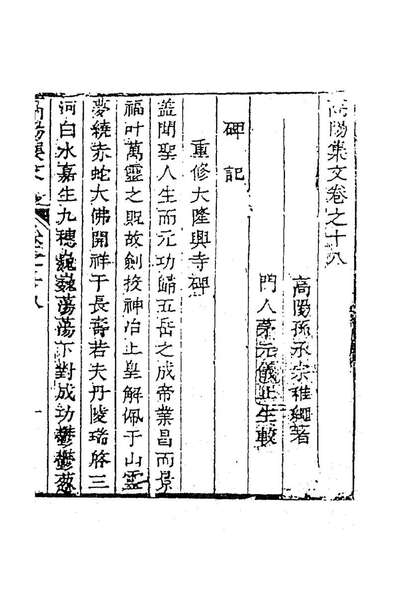 高陽集文卷之十八
高陽孫承宗稚繩著
門人茅元儀止生較
碑記
重修大隆興寺碑
蓋聞聖人生而元功歸五岳之成帝業昌而景
福叶萬靈之貺故劍投神冶止皇解佩于山靈
夢繞赤蛇大佛開祥于長壽若夫丹陵珞胳三
河白水嘉生九穗巍巍蕩蕩下對成功鬱鬱蔥